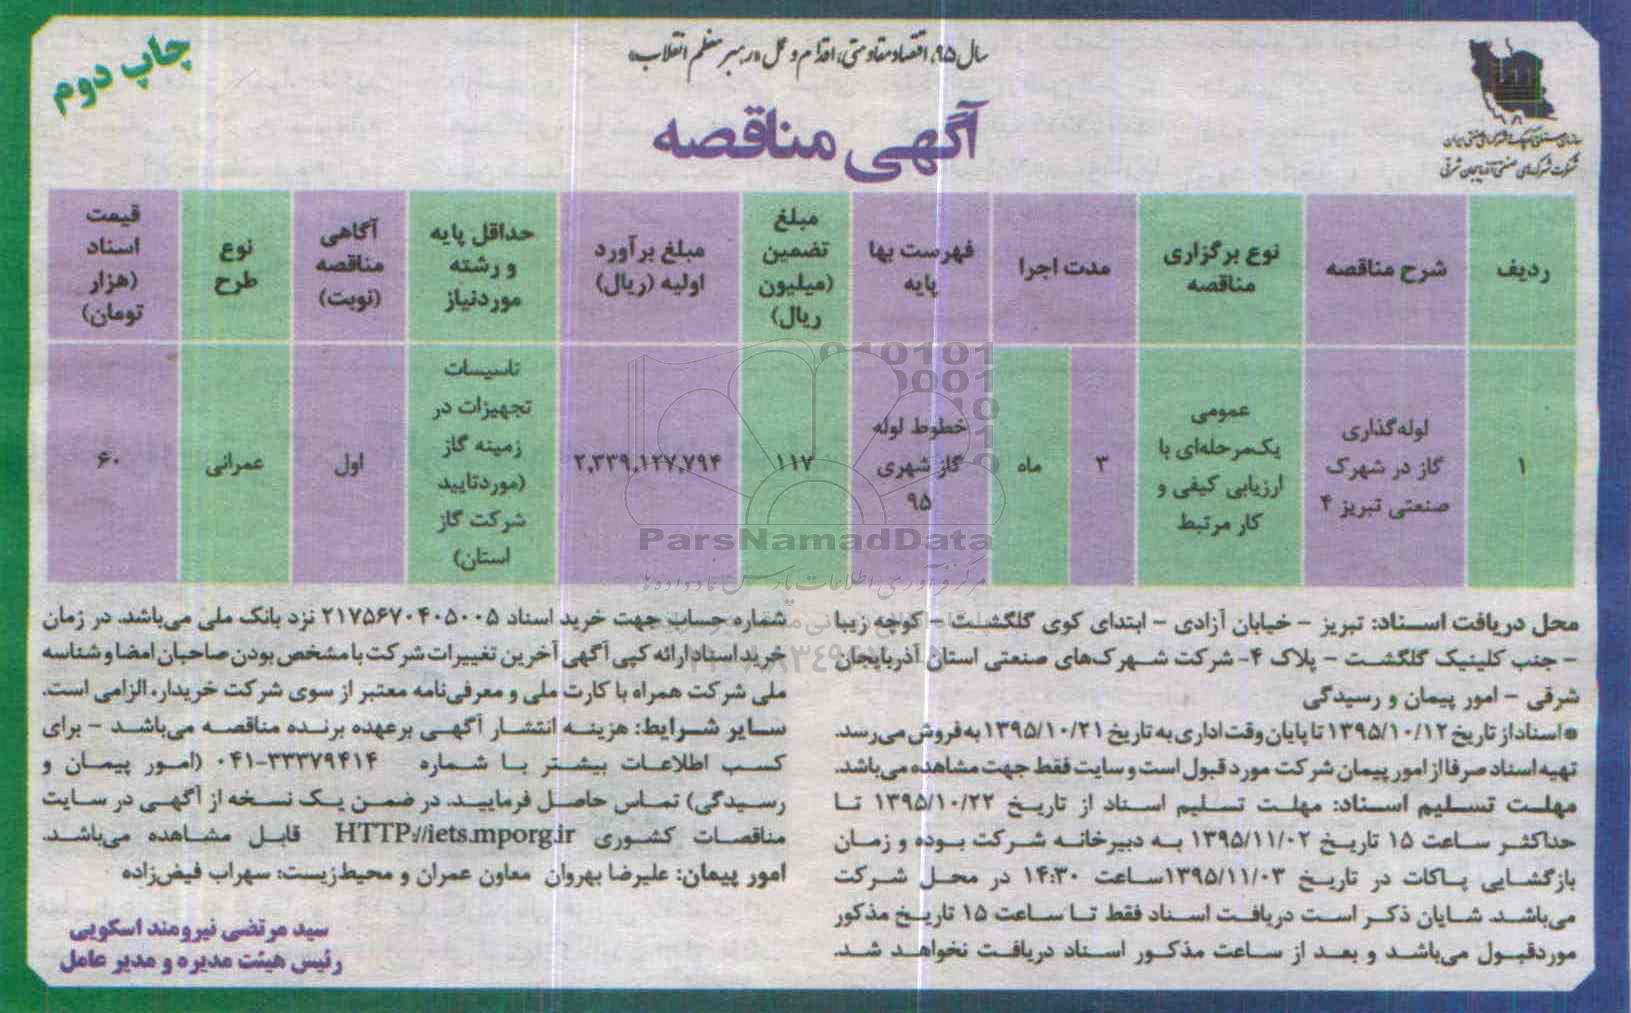 چاپ دوم
سال ۹۵، اقتصاد مقاومتی، اقدام و عمل «رهبر معظم انقلاب»
شرکت شهرک‌های صنعتی آذربایجان شرقی
آگهی مناقصه
ردیف
شرح مناقصه
نوع برگزاری
مناقصه
مدت اجرا
فهرست بها
پایه
مبلغ
تضمین
(میلیون
ریال)
مبلغ برآورد
اولیه (ریال)
حداقل پایه
و رشته
موردنیاز
آگاهی
مناقصه
(نوبت)
نوع
طرح
قیمت
اسناد
(هزار
تومان)
۱
لوله‌گذاری
گاز در شهرک
صنعتی تبریز ۴
عمومی
یک‌مرحله‌ای با
ارزیابی کیفی و
کار مرتبط
۳
ماه
خطوط لوله
گاز شهری
۹۵
۱۱۷
۲,۳۳۹,۱۲۷,۷۹۴
تاسیسات
تجهیزات در
زمینه گاز
(موردتایید
شرکت گاز
استان)
اول
عمرانی
۶۰
ParsNamadData
محل دریافت اسناد: تبریز – خیابان آزادی – ابتدای کوی گلگشت – کوچه زیبا
– جنب کلینیک گلگشت – پلاک ۴- شرکت شهرک‌های صنعتی استان آذربایجان
شرقی – امور پیمان و رسیدگی
*اسناد از تاریخ ۱۳۹۵/۱۰/۱۲ تا پایان وقت اداری به تاریخ ۱۳۹۵/۱۰/۲۱ به فروش می‌رسد.
تهیه اسناد صرفا از امور پیمان شرکت مورد قبول است و سایت فقط جهت مشاهده می‌باشد.
مهلت تسلیم اسناد: مهلت تسلیم اسناد از تاریخ ۱۳۹۵/۱۰/۲۲ تا
حداکثر ساعت ۱۵ تاریخ ۱۳۹۵/۱۱/۰۲ به دبیرخانه شرکت بوده و زمان
بازگشایی پاکات در تاریخ ۱۳۹۵/۱۱/۰۳ساعت ۱۴:۳۰ در محل شرکت
می‌باشد. شایان ذکر است دریافت اسناد فقط تا ساعت ۱۵ تاریخ مذکور
موردقبول می‌باشد و بعد از ساعت مذکور اسناد دریافت نخواهد شد.
شماره حساب جهت خرید اسناد ۲۱۷۵۶۷۰۴۰۵۰۰۵ نزد بانک ملی می‌باشد. در زمان
خرید اسناد ارائه کپی آگهی آخرین تغییرات شرکت با مشخص بودن صاحبان امضا و شناسه
ملی شرکت همراه با کارت ملی و معرفی‌نامه معتبر از سوی شرکت خریدار، الزامی است.
سایر شرایط: هزینه انتشار آگهی برعهده برنده مناقصه می‌باشد – برای
کسب اطلاعات بیشتر با شماره ۳۳۳۷۹۴۱۴-۰۴۱ (امور پیمان و
رسیدگی) تماس حاصل فرمایید. در ضمن یک نسخه از آگهی در سایت
مناقصات کشوری HTTP://iets.mporg.ir قابل مشاهده می‌باشد.
امور پیمان: علیرضا بهروان معاون عمران و محیط‌زیست: سهراب فیض‌زاده
سید مرتضی نیرومند اسکویی
رئیس هیئت مدیره و مدیر عامل